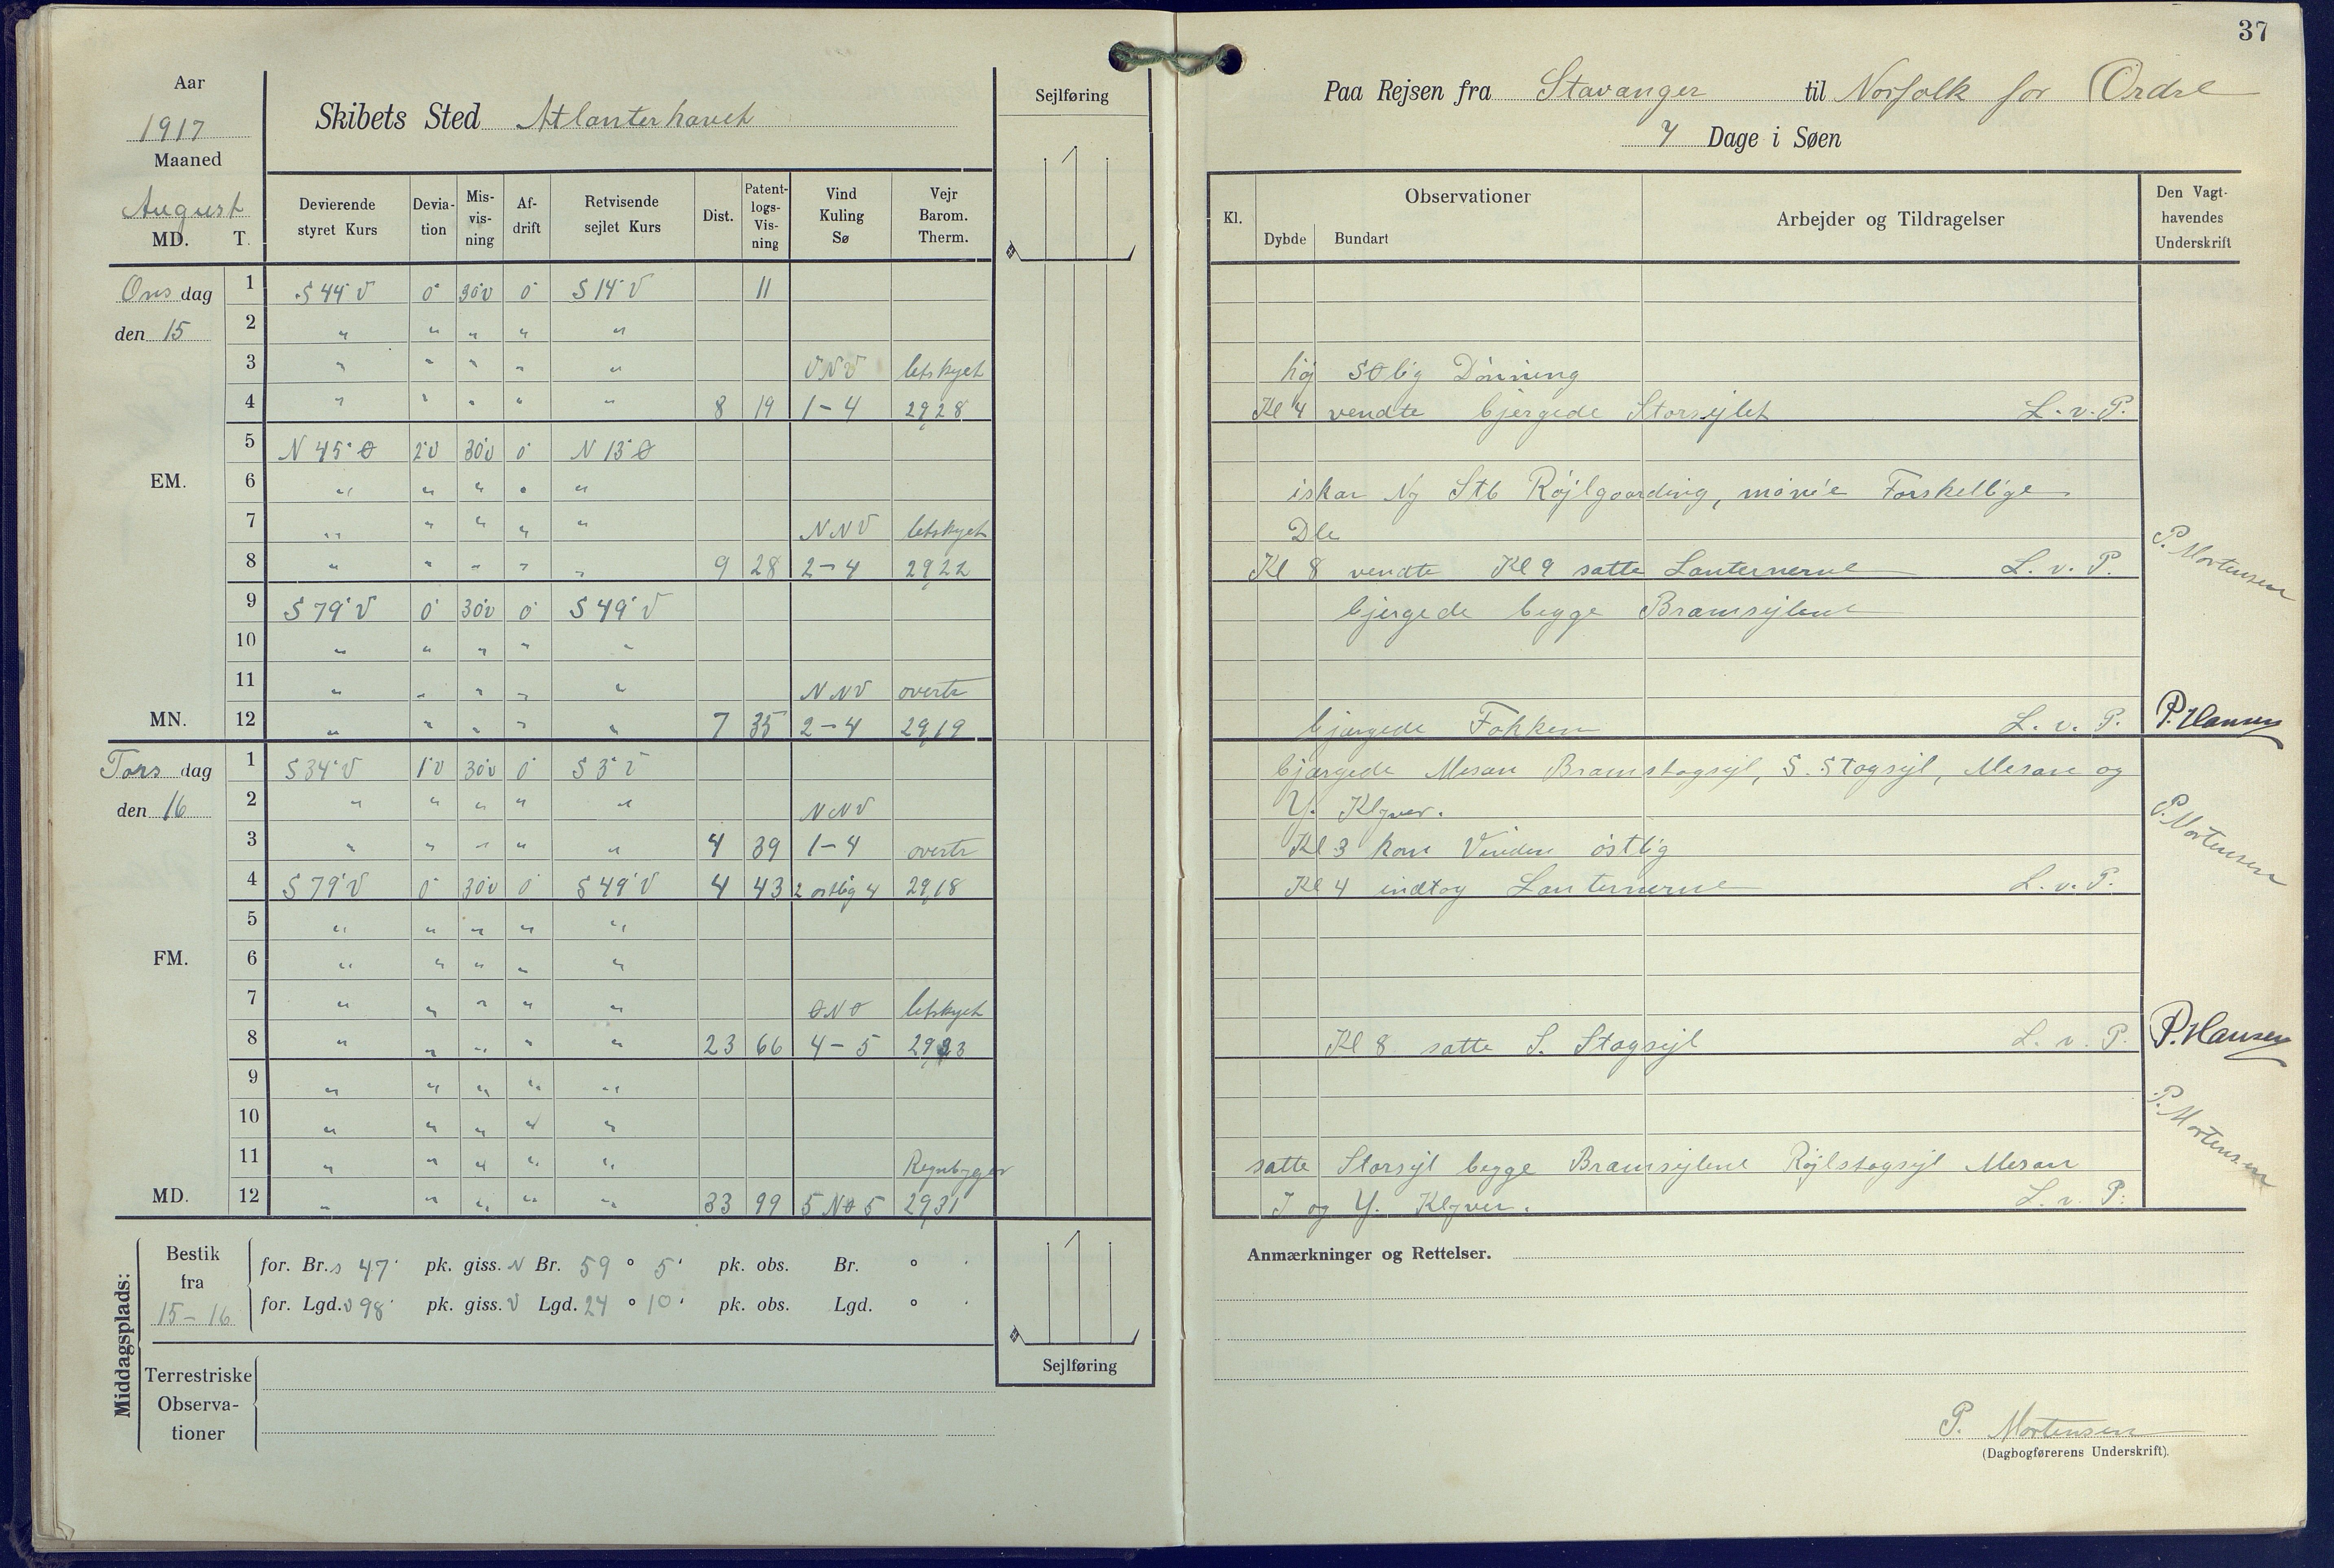 Aar
1917
Maaned
August
MD. T.
Skibets Sted Atlanterhavet
Sejlføring
Devierende styret Kurs
Deviation
Misvisning
Afdrift
Retvisende sejlet Kurs
Dist.
Patentlogs-Visning
Vind Kuling Sø
Vejr Barom. Therm.
Onsdag
den 15
1 S 44° V 0° 30°V 0° S 14° V 11
2 " " " " "
3 " " " " " VNV letskyet
4 " " " " " 8 19 1-4 29,28
EM.
5 N 45° Ø 2°V 30°V 0° N 13° Ø
6 " " " " "
7 " " " " " NNV letskyet
8 " " " " " 9 28 2-4 29,22
9 S 79° V 0° 30°V 0° S 49° V
10 " " " " "
11 " " " " " NNV overtr
MN.
12 " " " " " 7 35 2-4 29,19
Torsdag
den 16
1 S 34° V 1°V 30°V 0° S 3° V
2 " " " " " NNV
3 " " " " " 4 39 1-4 overtr
4 S 79° V 0° 30°V 0° S 49° V 4 43 2 østlig 4 29,18
5 " " " " "
FM.
6 " " " " "
7 " " " " " ØNØ letskyet
8 " " " " " 23 66 4-5 29,23
9 " " " " "
10 " " " " "
11 " " " " " Regnbyger
MD.
12 " " " " " 33 99 5 NØ 5 29,31
Middagsplads:
Bestik fra 15-16
for. Br. S 47' pk. giss. N Br. 59 ° 5' pk. obs. Br. ° '
for. Lgd. V 98' pk. giss. V Lgd. 24 ° 10' pk. obs. Lgd. ° '
Sejlføring
Terrestriske Observationer
37
Paa Rejsen fra Stavanger til Norfolk for Ordre
7 Dage i Søen
Kl.
Observationer
Dybde Bundart
Arbejder og Tildragelser
Den Vagthavendes Underskrift
høj SØlig Dønning
Kl 4 vendte bjergede Storsejlet L. v. P.
iskar Ny Stb Røjlgaarding, mønie Forskellige
Dle
Kl 8 vendte Kl 9 satte Lanternerne L. v. P.
P. Mortensen
bjergede begge Bramsejlene
bjærgede Fokken L. v. P.
P. Hansen
bjærgede Mesan Bramstagsejl, S. Stagsejl, Mesan og
Y. Klyver.
Kl 3 kom Vinden østlig
Kl 4 indtog Lanternerne L. v. P.
P. Mortensen
Kl 8 satte S. Stagsejl L. v. P.
P. Hansen
satte Storsejl begge Bramsejlene Røjlstagsejl Mesan
J og Y. Klyver. L. v. P.
P. Mortensen
Anmærkninger og Rettelser.
P. Mortensen
(Dagbogførerens Underskrift).